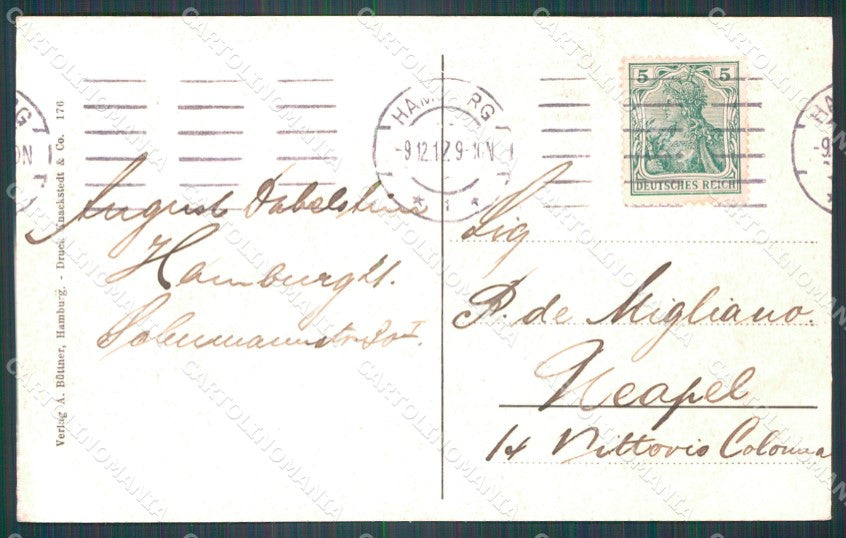 Verlag A. Büttner, Hamburg. - Druck Knackstedt & Co. 176
August Dabelstein
Hamburg 21.
30 I.
HAMBURG
-9.12.12.9-10N
* 1 *
5 5
DEUTSCHES REICH
Sig
R. de Migliano.
Neapel
14 Vittorio Colonna
CARTOLINOMANIA